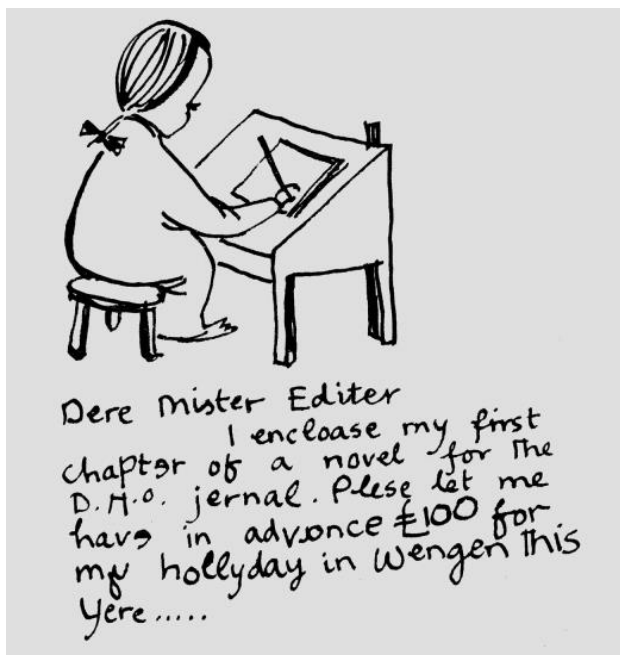 Dere Mister Editer
I encloase my first
chapter of a novel for The
D.H.O. jernal. Plese let me
have in advonce £100 for
my hollyday in Wengen This
Yere.....